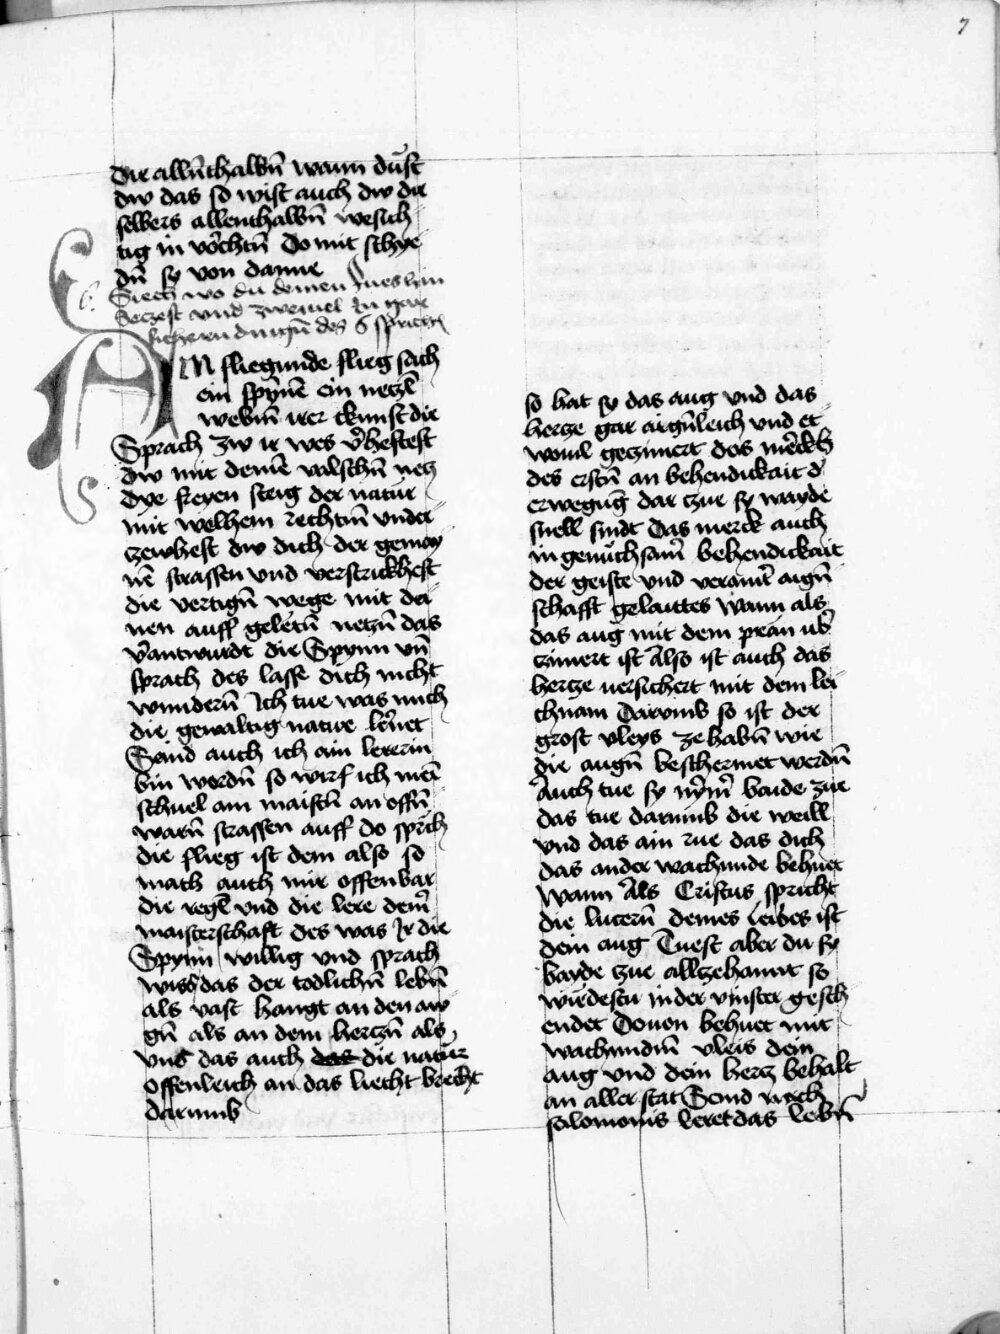 7
die allñthalbñ wann dust
dw das so wist auch dw die
selbers allenthalbñ wesich
tig in vörchtñ Do mit schye
dñ sy von danne
6. Siech wo du deinen fues hin
seczest vnd zweiuel In gar
sichern dingñ des 6 sprichst
AIn fliegunde flieg sach
ein spynnẽ ein neczlẽ
webñ irer kunst die
Sprach zw ir wes v̾heftest
dw mit deinẽ valschñ necz
dye freyen steig der natur
mit welhem rechtñ vnder
zewhest dw dich der gemay
nẽ strassen vnd verstrickhest
die vertigñ wege mit dei
nen auff gelétñ neczñ das
v̾antwurdt die Spynn vñ
sprach des lasse dich nicht
wundern Ich tue was mich
die gewaltig natur lernet
Seind auch ich ain lererin
bin wordñ so wirf ich mein
schuel am maistñ an offñ
warñ strassen auff do sprich
die flieg ist dem also so
mach auch mir offenbar
die regel vnd die lere deiner
maisterschaft des was Ir die
Spynn willig vnd sprach
wiss das der todlichñ lebñ
als vast hangt an den aw
gñ als an dem herczñ als
vns das auch die natur
offenleich an das liecht brecht
darumb
so hat sy das aug vnd das
hercze gar aigñleich vnd et
des erstñ an behendickait d̾
erwegug̃ dar zue sy wayde
snell sindt Das merck auch
in genuchsamer behendickait
der geiste vnd veraint aigñ
schafft gelauttes wann als
das aug mit dem pran vb̾
zimert ist Also ist auch das
hercze versichert mit dem lei
chnam Darumb so ist der
grost vleys ze habñ wie
die augñ beschermet werdñ
Auch tue sy nymer baide zue
das tue darumb die weill
vnd das ain rue das dich
das ander wachunde behuet
wann Als Cristus spricht
die lucern deines leibes ist
dein aug Tuest aber du sy
bayde zue allzehannt so
wirdestu in der vinster gesch
endet Douon behuet mit
wachundm̃ vleis dein
aug vnd dein hercz behalt
an aller stat Seind nach
salomonis leret das lebñ